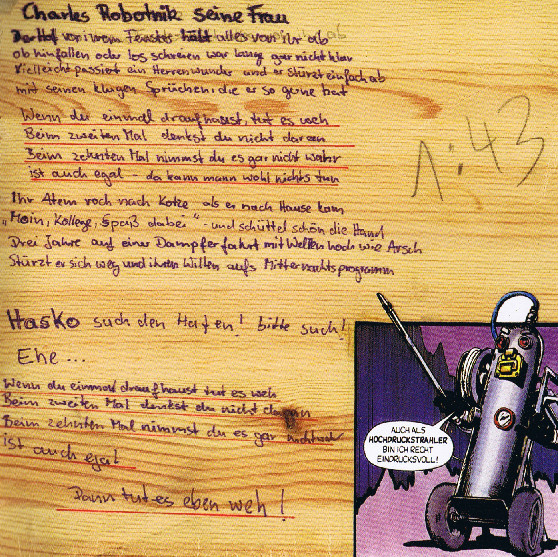 Charles Robotnik seine Frau
Der Hof vor ihrem Fenster hält alles von ihr ab
ob hinfallen oder los schreien war lange gar nicht klar
Vielleicht passiert ein Herrenwunder und er stürzt einfach ab
mit seinen klugen Sprüchen die er so gerne hat
Wenn du einmal draufhaust, tut es weh
Beim zweiten Mal denkst du nicht daran
Beim zehnten Mal nimmst du es gar nicht wahr
ist auch egal - da kann man wohl nichts tun
Ihr Atem roch nach Kotze als er nach Hause kam
"Moin, Kollege, Spaß dabei" - und schüttel schön die Hand
Drei Jahre auf einer Dampferfahrt mit Wellen hoch wie Arsch
Stürzt er sich weg und ihren Willen aufs Mitternachtsprogramm
1:43
Hasko such den Hafen! bitte such!
Ehe...
Wenn du einmal draufhaust tut es weh
Beim zweiten Mal denkst du nicht daran
Beim zehnten Mal nimmst du es gar nicht wahr
ist auch egal
Dann tut es eben weh!
AUCH ALS
HOCHDRUCKSTRAHLER
BIN ICH RECHT
EINDRUCKSVOLL!